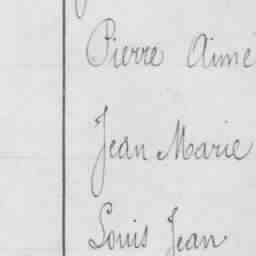 Pierre Aimé
Jean Marie
Louis Jean